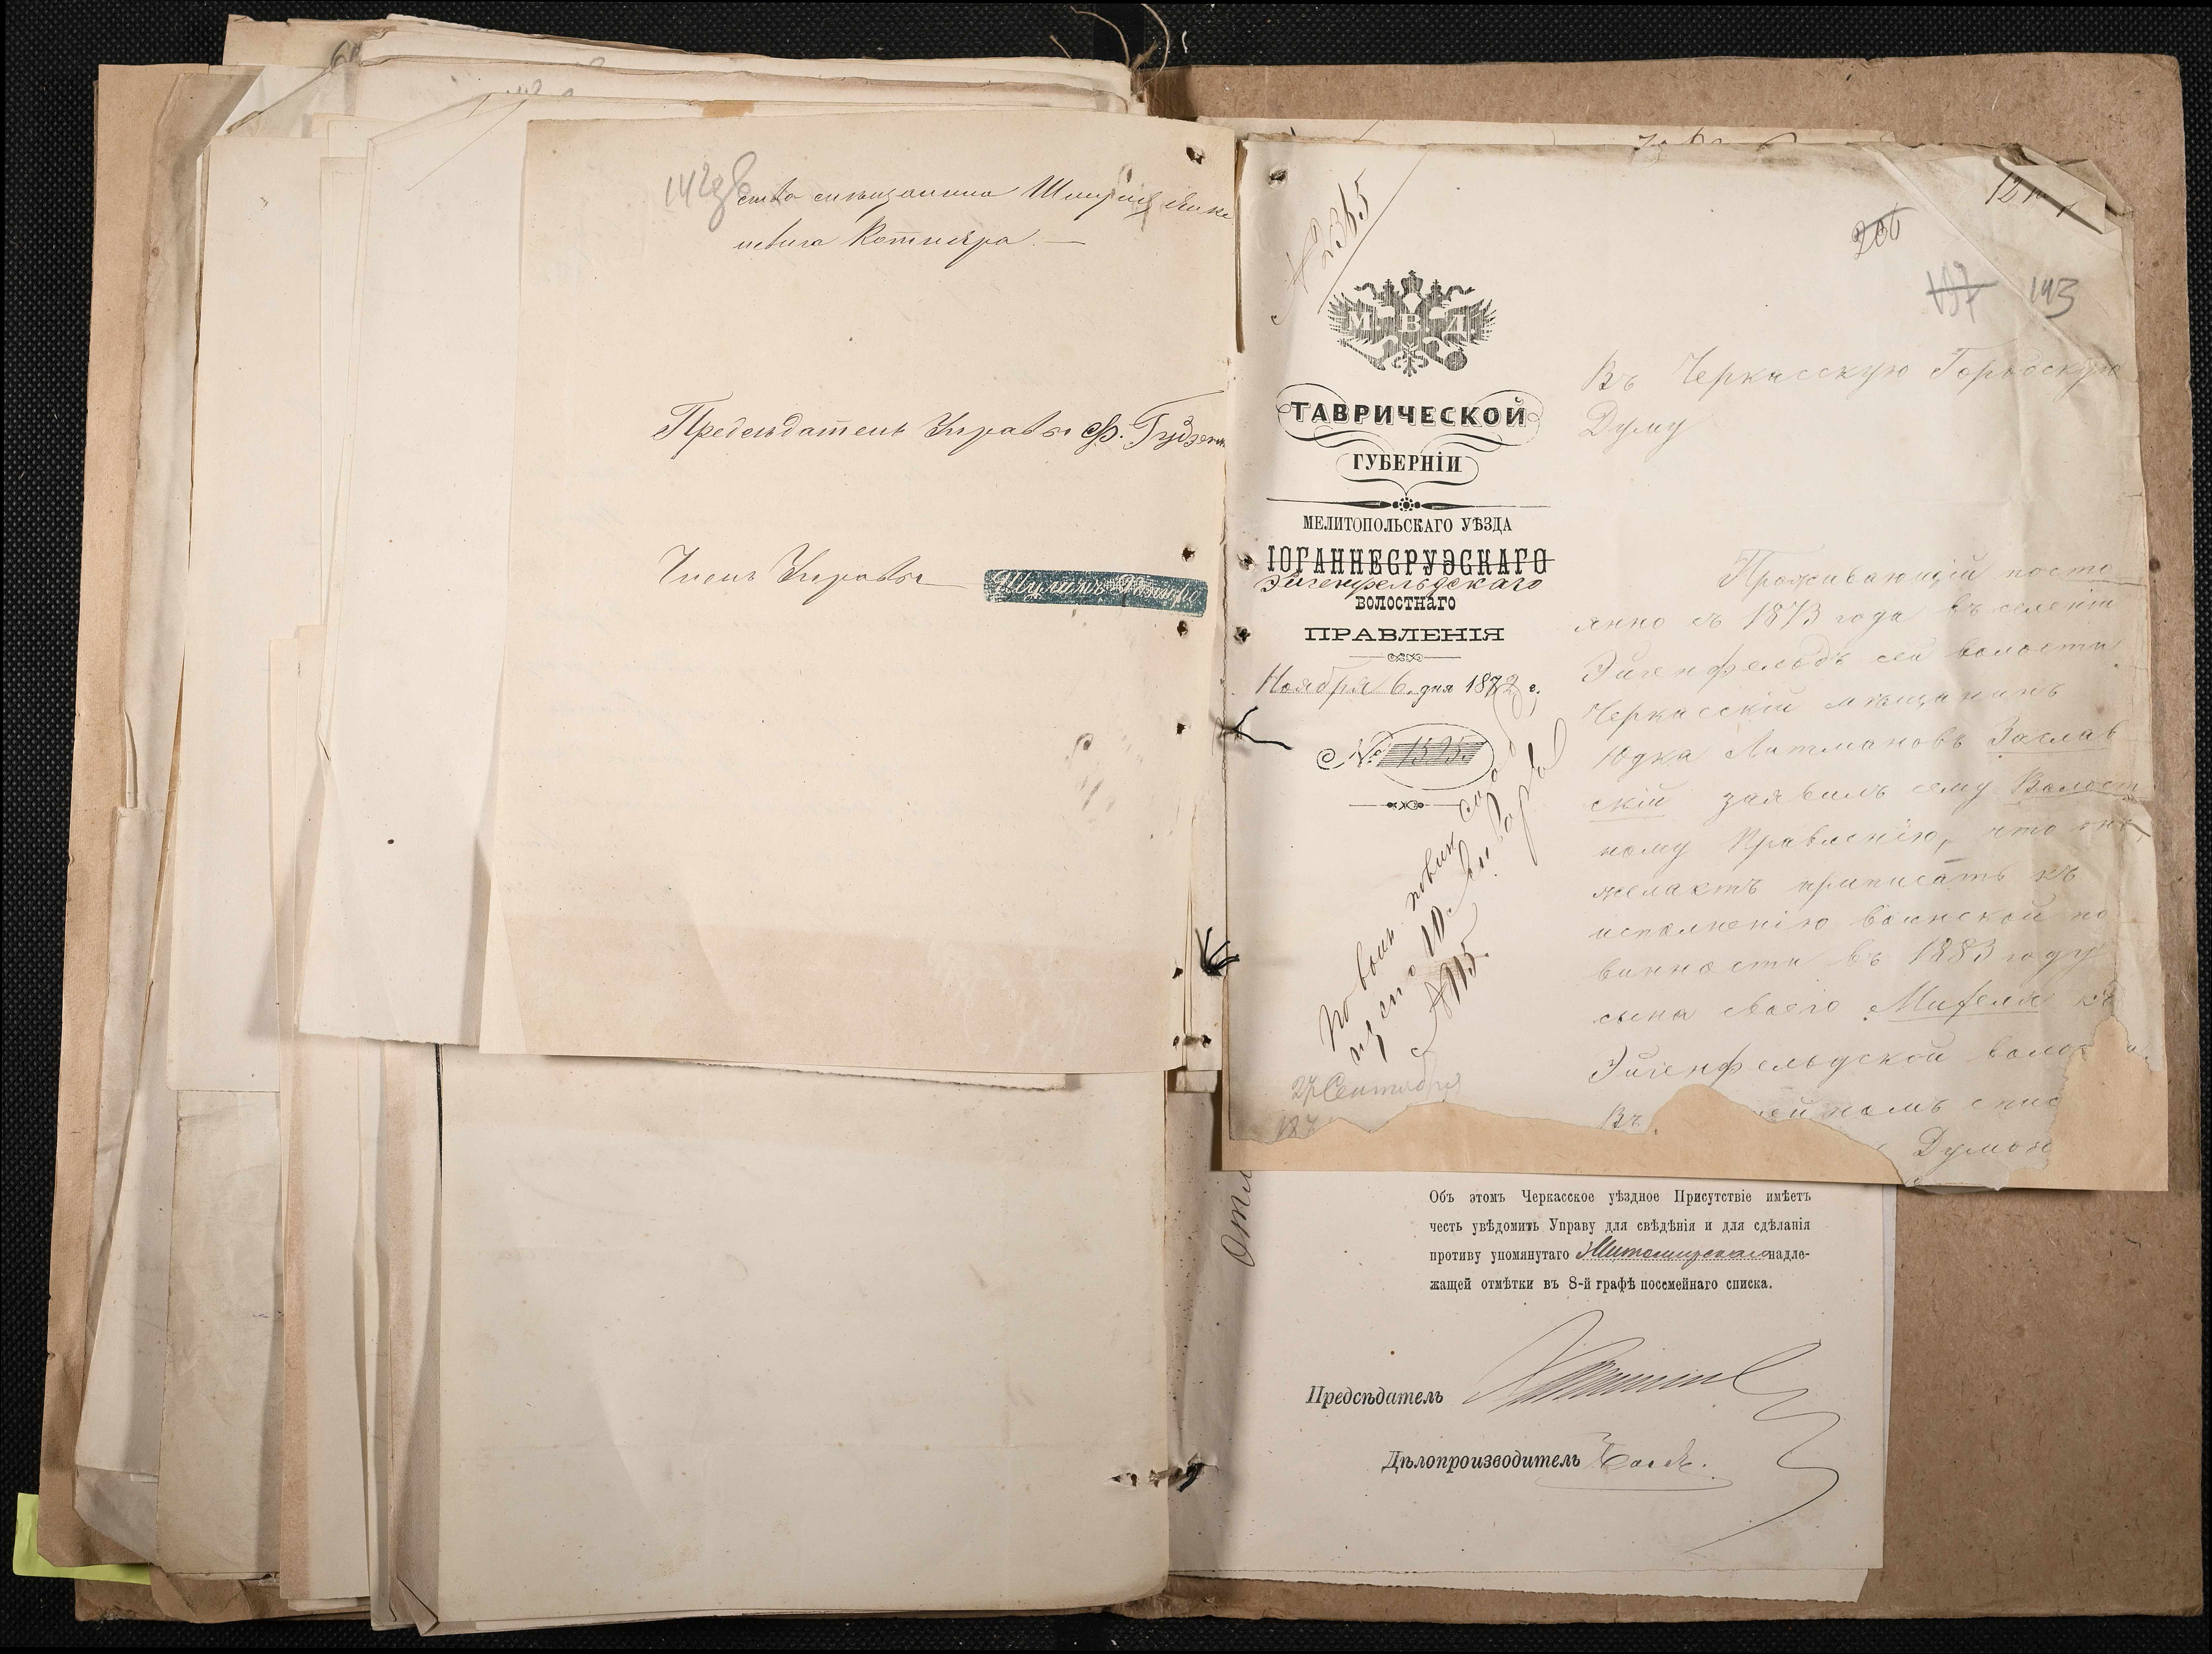 142об
ства мѣщанина
невича Котляра. —
Предсѣдатель Управы Ф. Гудзен
Членъ Управы
№ 2365
М. В. Д.
ТАВРИЧЕСКОЙ
ГУБЕРНІИ
МЕЛИТОПОЛЬСКАГО УѢЗДА
ІОГАННЕСРУЭСКАГО
Эйгенфельдскаго
ВОЛОСТНАГО
ПРАВЛЕНІЯ
Ноября 6. дня 1872 г.
№ 1595
По воин. повин.
10. января
№ 115.
27 Сентября
187
206
137 143
Въ Черкасскую Городскую
Думу
Проживающій посто
янно съ 1873 года въ селеніи
Эйгенфельдъ сей волости
Черкасскій мѣщанинъ
Юдка Литмановъ Заслав
скій заявилъ сему Волост
ному Правленію, что онъ
желаетъ приписать къ
исполненію воинской по
винности въ 1883 году
сына своего къ
Эйгенфельдской воло
Въ
Думой
Объ этомъ Черкасское уѣздное Присутствіе имѣетъ
честь увѣдомить Управу для свѣдѣнія и для сдѣланія
противу упомянутаго Житомирскаго надле-
жащей отмѣтки въ 8-й графѣ посемейнаго списка.
Предсѣдатель
Дѣлопроизводитель